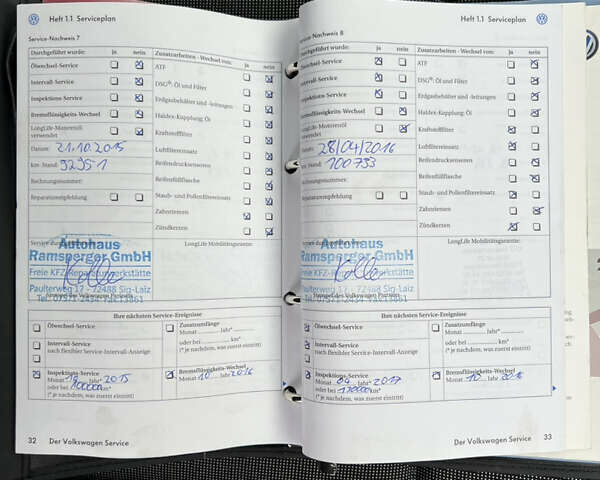 Heft 1.1 Serviceplan
Service-Nachweis 7
Durchgeführt wurde: ja nein
Ölwechsel-Service
Intervall-Service
Inspektions-Service
Bremsflüssigkeits-Wechsel
LongLife-Motorenöl
verwendet
Datum: 21.10.2015
km-Stand:
Rechnungsnummer:
Reparaturempfehlung
Zusatzarbeiten - Wechsel von: ja nein
ATF
DSG®: Öl und Filter
Erdgasbehälter und -leitungen
Haldex-Kupplung: Öl
Kraftstofffilter
Luftfiltereinsatz
Reifendrucksensoren
Reifenfüllflasche
Staub- und Pollenfiltereinsatz
Zahnriemen
Zündkerzen
LongLife Mobilitätsgarantie:
Autohaus
Ramsperger GmbH
Freie KFZ-Reparaturwerkstätte
Paulterweg 17 - 72488 Sig-Laiz
Ihre nächsten Service-Ereignisse
Ölwechsel-Service
Intervall-Service
nach flexibler Service-Intervall-Anzeige
Inspektions-Service
Monat Jahr* 2015
oder bei km*
(* je nachdem, was zuerst eintritt)
Zusatzumfänge
Monat Jahr*
oder bei km*
(* je nachdem, was zuerst eintritt)
Bremsflüssigkeits-Wechsel
Monat 10 Jahr 2016
32 Der Volkswagen Service
Heft 1.1 Serviceplan
Service-Nachweis 8
Durchgeführt wurde: ja nein
Ölwechsel-Service
Intervall-Service
Inspektions-Service
Bremsflüssigkeits-Wechsel
LongLife-Motorenöl
verwendet
Datum: 28/04/2016
km-Stand: 100733
Rechnungsnummer:
Reparaturempfehlung
Zusatzarbeiten - Wechsel von: ja nein
ATF
DSG®: Öl und Filter
Erdgasbehälter und -leitungen
Haldex-Kupplung: Öl
Kraftstofffilter
Luftfiltereinsatz
Reifendrucksensoren
Reifenfüllflasche
Staub- und Pollenfiltereinsatz
Zahnriemen
Zündkerzen
LongLife Mobilitätsgarantie:
Autohaus
Ramsperger GmbH
Freie KFZ-Reparaturwerkstätte
Paulterweg 17 - 72488 Sig-Laiz
Ihre nächsten Service-Ereignisse
Ölwechsel-Service
Intervall-Service
nach flexibler Service-Intervall-Anzeige
Inspektions-Service
Monat 04 Jahr* 2017
oder bei km*
(* je nachdem, was zuerst eintritt)
Zusatzumfänge
Monat Jahr*
oder bei km*
(* je nachdem, was zuerst eintritt)
Bremsflüssigkeits-Wechsel
Monat 10 Jahr 2016
Der Volkswagen Service 33